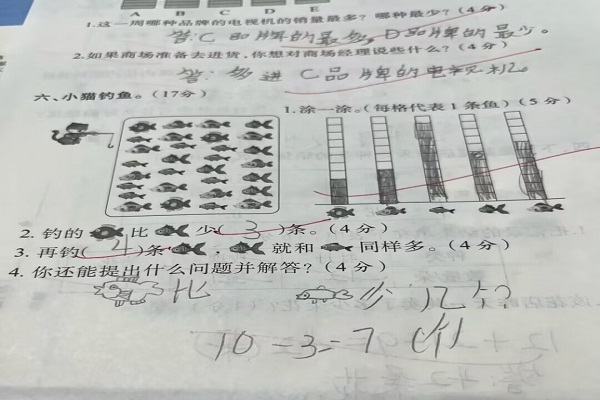 A B C D E
1.这一周哪种品牌的电视机的销量最多？哪种最少？(4分)
答：C品牌的最多，D品牌的最少。
2.如果商场准备去进货，你想对商场经理说些什么？(4分)
答：多进C品牌的电视机。
六、小猫钓鱼。(17分)
1.涂一涂。(每格代表1条鱼)(5分)
2. 钓的 比 少(3)条。(4分)
3. 再钓(4)条 ， 就和 同样多。(4分)
4. 你还能提出什么问题并解答？(4分)
比 少几个？
10-3=7(个)